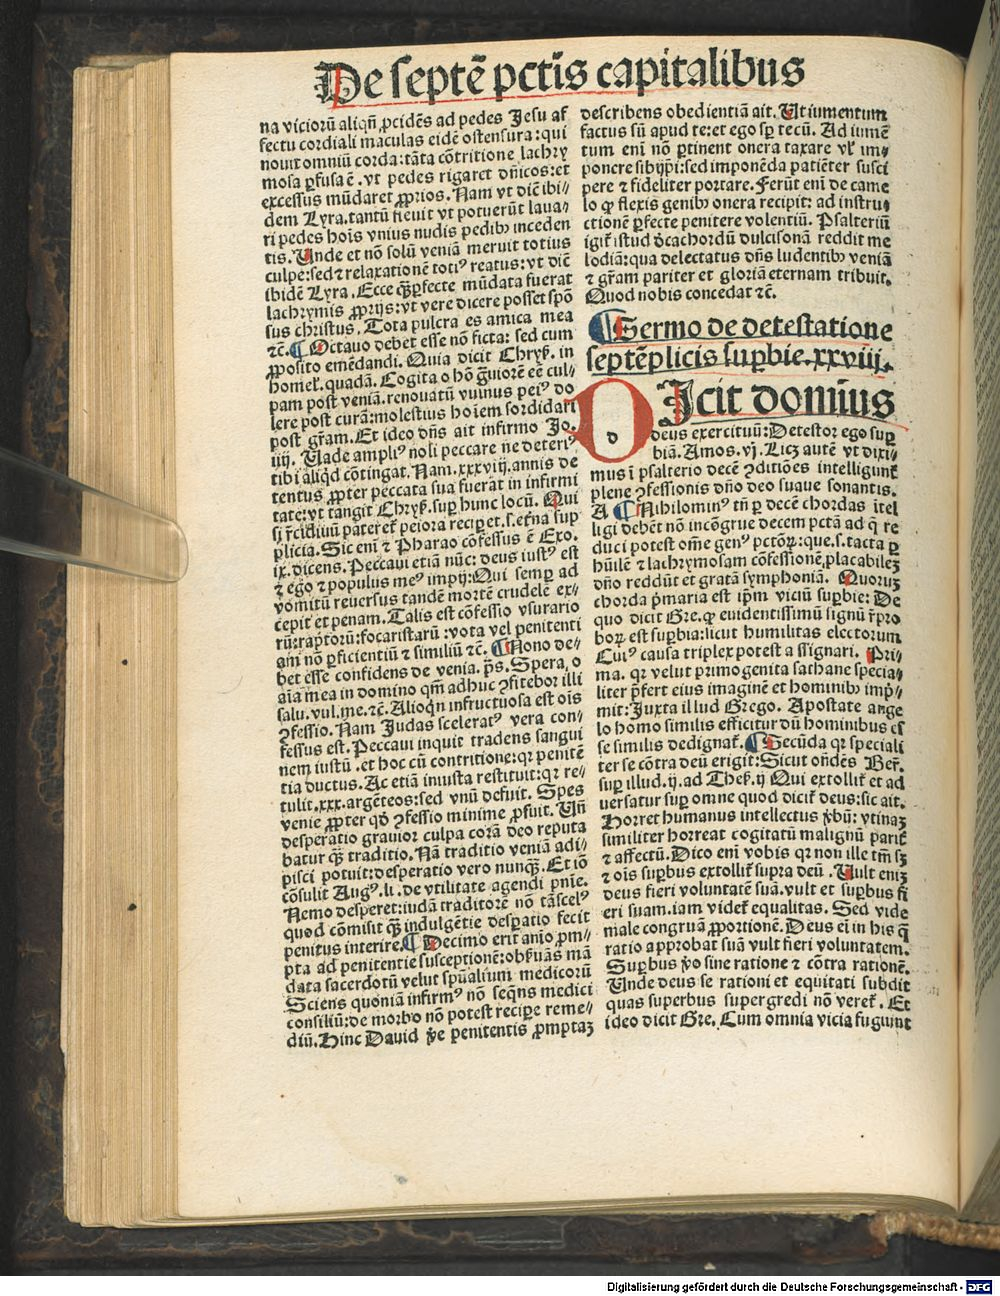 De septē pctīs capitalibus
na vicioꝝ aliqñ ꝓcidēs ad pedes Jesu af
fectu cordiali maculas eidē ostensura: qui
nouit omniū corda: tāta cōtritione lachry
mosa ꝑfusa ē. vt pedes rigaret dñicos: et
excessus mūdaret ꝓprios. Nam vt dīc ibi⸗
dem Lyra. tantū fleuit vt potuerūt laua⸗
ri pedes hoīs vnius nudis pedibꝰ inceden
tis. Unde et nō solū veniā meruit totius
culpe: sed ⁊ relaxationē totiꝰ reatus: vt dīc
ibidē Lyra. Ecce qꝫ ꝑfecte mūdata fuerat
lachrymis ꝓprijs: vt vere dicere posset spō
sus christus. Tota pulcra es amica mea
⁊c. ¶ Octauo debet esse nō ficta: sed cum
ꝓposito emēdandi. Quia dicit Chryſ. in
homeł. quadā. Cogita o hō grauiorē eē cul⸗
pam post veniā. renouatū vulnus peiꝰ do
lere post curā: molestius hoīem sordidari
post grām. Et ideo dñs ait infirmo Jo.
iiij. Uade ampliꝰ noli peccare ne deteriꝰ
tibi aliqd cōtingat. Nam .xxxviij. annis de
tentus ꝓpter peccata sua fuerat in infirmi
tate: vt tangit Chryſ. suꝑ hunc locū. Qui
si recidiuū pateret̃ peiora reciperet .s. eterna sup
plicia. Sic enī ⁊ Pharao cōfessus ē Exo.
ix. dicens. Peccaui etiā nūc: deus iustꝰ est
⁊ ego ⁊ populus meꝰ impij: Qui semꝑ ad
vomitū reuersus tandē mortē crudelē ex⸗
cepit et penam. Talis est cōfessio vsurario
rū: raptorū: focaristarū: vota vel penitenti
am nō ꝑficientiū ⁊ similiū ⁊c. ¶ Nono de⸗
bet esse confidens de venia. ps. Spera o
aīa mea in domino qm̄ adhuc ꝯfitebor illi
salu. vul. me. ⁊c. Alioqn infructuosa est oīs
ꝯfessio. Nam Judas sceleratꝰ vera con⸗
fessus est. Peccaui inquit tradens sangui
nem iustū. et hoc cū contritione: qꝛ penitē
tia ductus. Ac etiā iniusta restituit: qꝛ re⸗
tulit .xxx. argēteos: sed vnū defuit. Spes
venie ꝓpter qď ꝯfessio minime ꝓfuit. Uñ
desperatio grauior culpa corā deo reputa
batur qꝫ traditio. Nā traditio veniā adi⸗
pisci potuit: desperatio vero nunqꝫ. Et iō
cōsulit Augꝰ. li. de vtilitate agendi pnīe.
Nemo desperet: iudā traditorē nō tā scelꝰ
quod cōmisit qꝫ indulgētie desꝑatio fecit
penitus interire. ¶ Decimo erit animo prom⸗
pta ad penitentie susceptionē: obseruās mā
data sacerdotū velut spūalium medicorū
Sciens quoniā infirmꝰ nō seqñs medici
consiliū: de morbo nō potest recipe reme⸗
diū. Hinc Dauid ṽe penitentis ꝓmptaꝫ
describens obedientiā ait. Ut iumentum
factus sū apud te: et ego sꝑ tecū. Ad iumē
tum enī nō ꝑtinent onera taxare vł im⸗
ponere sibijpi: sed imponēda patiēter susci
pere ⁊ fideliter portare. Ferūt enī de came
lo ꝙ flexis genibꝰ onera recipit: ad instru⸗
ctionē ꝑfecte penitere volentiū. Psalteriū
igit̃ istud decachordū dulcisonā reddit me
lodiā: qua delectatus dñs ludentibꝰ veniā
⁊ grām pariter et gloriā eternam tribuit.
Quod nobis concedat ⁊c.
¶ Sermo de detestatione
septēplicis suꝑbie. xxviij.
DIcit domīus
deus exercituū: Detestor ego suꝑ
biā. Amos. vj. Licꝫ autē vt dixi⸗
mus ī psalterio decē ꝯditiōes intelligunt̃
plene ꝯfessionis dño deo suaue sonantis.
A ¶ Nihilominꝰ tñ ꝑ decē chordas ītel
ligi debēt nō incōgrue decem pctā ad q̄ re
duci potest om̄e genꝰ pctōꝝ: que .s. tacta ꝑ
hūilē ⁊ lachrymosam cōfessionē, placabileꝫ
dño reddūt et gratā symphoniā. Quorum
chorda p̄maria est ip̄m viciū suꝑbie: De
quo dicit Gre. ꝙ euidentissimū signū repro
boꝝ est suꝑbia: sicut humilitas electorum
Cuiꝰ causa triplex potest assignari. Pri⸗
ma. qꝛ velut primogenita sathane specia⸗
liter p̄fert eius imaginē et hominibꝰ imp̄⸗
mit: Juxta illud Grego. Apostate ange
lo homo similis efficitur dū hominibus es
se similis dedignat̃. ¶ Secūda qꝛ speciali
ter se cōtra deū erigit: Sicut ondēs Ber.
suꝑ illud. ij. ad Theſ. ij Qui extollit̃ et ad
uersatur suꝑ omne quod dicit̃ deus: sic ait.
Horret humanus intellectus ṽbū: vtinaꝫ
similiter horreat cogitatū malignū parit̃
⁊ affectū. Dico enī vobis qꝛ non ille tm̄ sꝫ
⁊ oīs suꝑbus extollit̃ supra deū. Uult enim
deus fieri voluntatē suā. vult et suꝑbus fi
eri suam. iam videt̃ equalitas. Sed vide
male congruā ꝓportionē. Deus eī in his q̄
ratio approbat suā vult fieri voluntatem.
Suꝑbus ṽo sine ratione ⁊ cōtra rationē.
Unde deus se rationi et equitati subdit
quas superbus supergredi nō veret̃. Et
ideo dicit Gre. Cum omnia vicia fugiunt
Digitalisierung gefördert durch die Deutsche Forschungsgemeinschaft - DFG